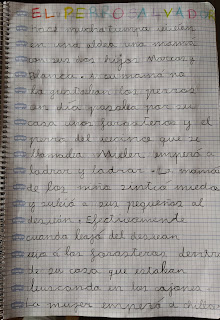 EL PERRO SALVADOR
Hace mucho tiempo vivían
en una aldea una mamá
con sus dos hijos Marcos y
Blanca. A su mamá no
le gustaban los perros
un día pasaba por su
casa unos forasteros y el
perro del vecino que se
llamaba Mueler empezó a
ladrar y ladrar. La mamá
de los niños sintió miedo
y subió a sus pequeños al
desván. Efectivamente
cuando bajó del desván
vio a los forasteros dentro
de su casa que estaban
buscando en los cajones.
La mujer empezó a chillar